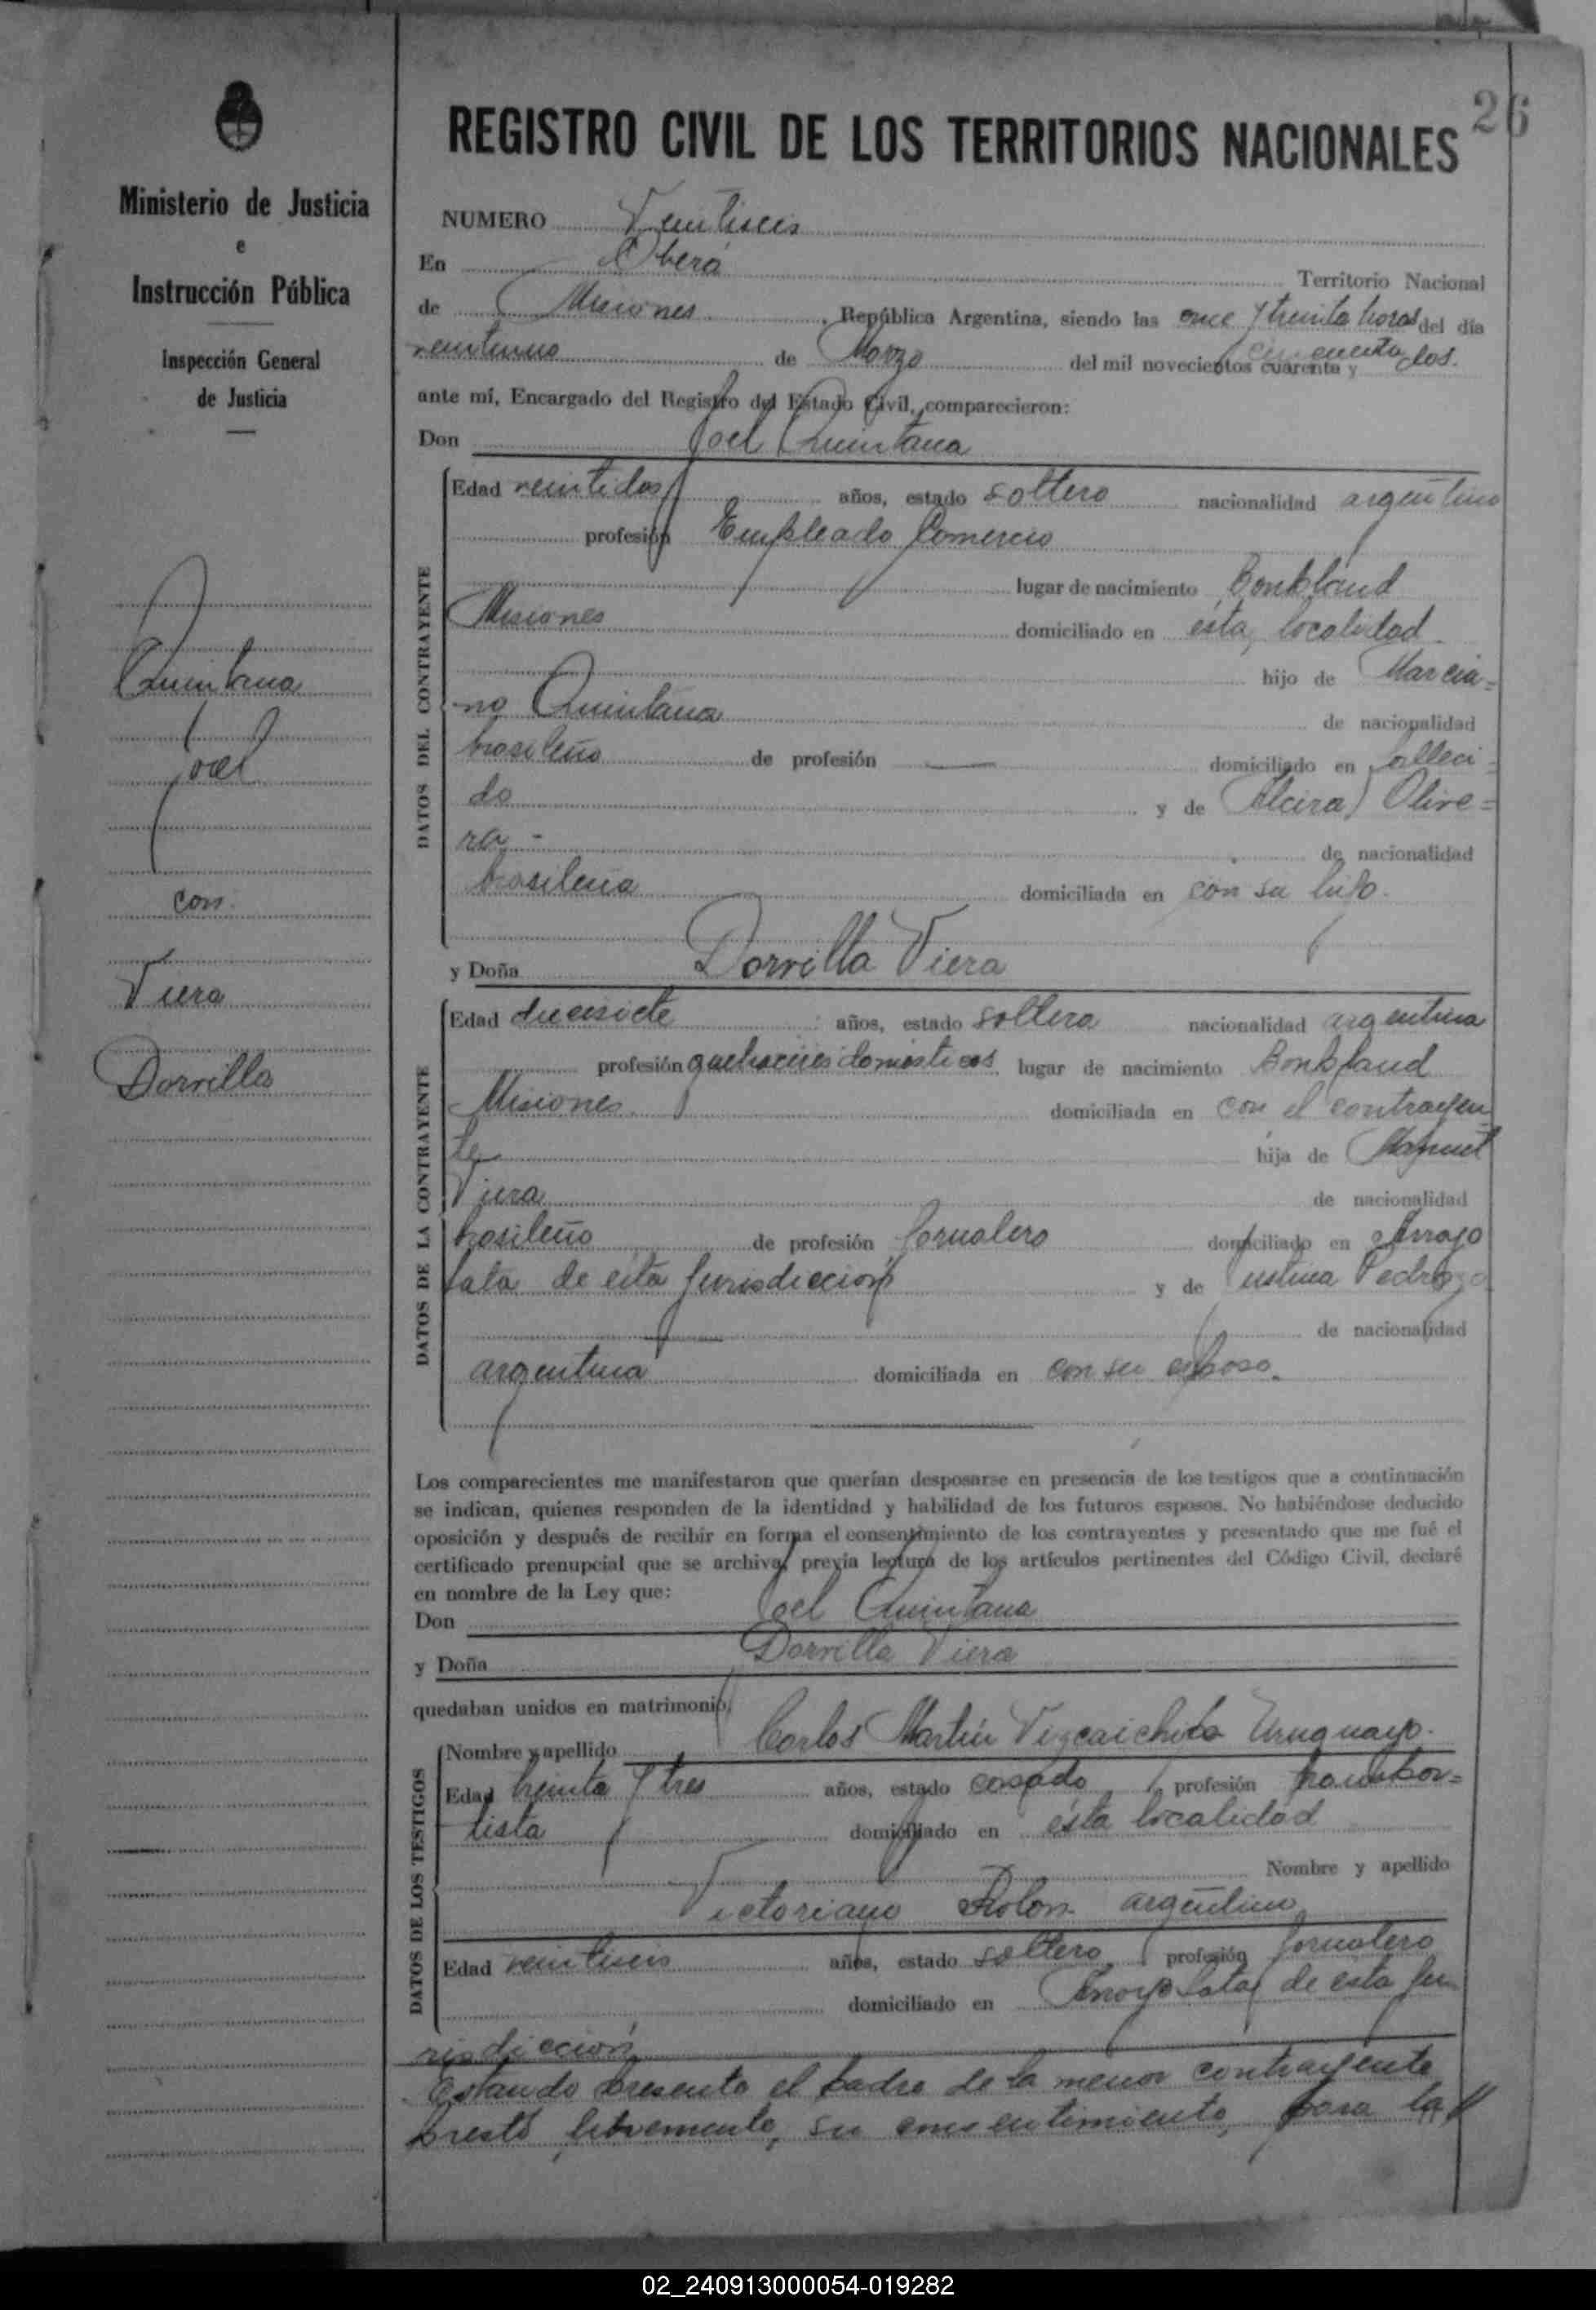 26
REGISTRO CIVIL DE LOS TERRITORIOS NACIONALES
Ministerio de Justicia
e
Instrucción Pública
Inspección General
de Justicia
Quintana
Joel
con
Viera
Dorvilla
NUMERO Veintiseis
En Oberá Territorio Nacional
de Misiones, República Argentina, siendo las once y treinta horas del día
veintiuno de Marzo del mil novecientos cuarenta y cincuenta dos.
ante mí, Encargado del Registro del Estado Civil, comparecieron:
Don Joel Quintana
DATOS DEL CONTRAYENTE
Edad veintidos años, estado soltero nacionalidad argentino
profesión Empleado Comercio
lugar de nacimiento Bonpland
Misiones domiciliado en ésta localidad
hijo de Marcia=
no Quintana de nacionalidad
brasileño de profesión — domiciliado en falleci=
do y de Alcira Olive=
ra - de nacionalidad
brasileña domiciliada en con su hijo.
y Doña Dorvilla Viera
DATOS DE LA CONTRAYENTE
Edad diecisiete años, estado soltera nacionalidad argentina
profesión quehaceres domésticos lugar de nacimiento Bonpland
Misiones domiciliada en con el contrayen
te hija de Manuel
Viera de nacionalidad
brasileño de profesión Jornalero domiciliado en Arroyo
Tala de esta Jurisdicción y de Justina Pedrozo
de nacionalidad
argentina domiciliada en con su esposo.
Los comparecientes me manifestaron que querían desposarse en presencia de los testigos que a continuación
se indican, quienes responden de la identidad y habilidad de los futuros esposos. No habiéndose deducido
oposición y después de recibir en forma el consentimiento de los contrayentes y presentado que me fué el
certificado prenupcial que se archiva, previa lectura de los artículos pertinentes del Código Civil, declaré
en nombre de la Ley que:
Don Joel Quintana
y Doña Dorvilla Viera
quedaban unidos en matrimonio.
DATOS DE LOS TESTIGOS
Nombre y apellido Carlos Martín Vizcaichipo Uruguayo.
Edad treinta y tres años, estado casado profesión transpor=
tista domiciliado en ésta localidad
Nombre y apellido
Victoriano Rolon argentino
Edad veintiseis años, estado soltero profesión jornalero
domiciliado en Arroyo Tala de esta Ju
risdicción
Estando presente el padre de la menor contrayente
prestó libremente, su consentimiento, para la//
02_240913000054-019282